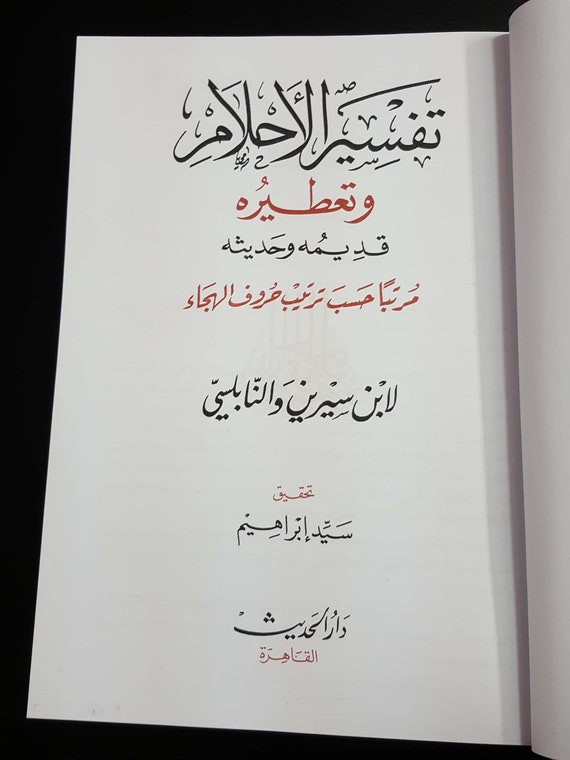 تفسير الأحلام
وتعطيره
قديمه وحديثه
مرتبًا حسب ترتيب حروف الهجاء
لابن سيرين والنابلسيّ
تحقيق
سيّد إبراهيم
دار الحديث
القاهرة